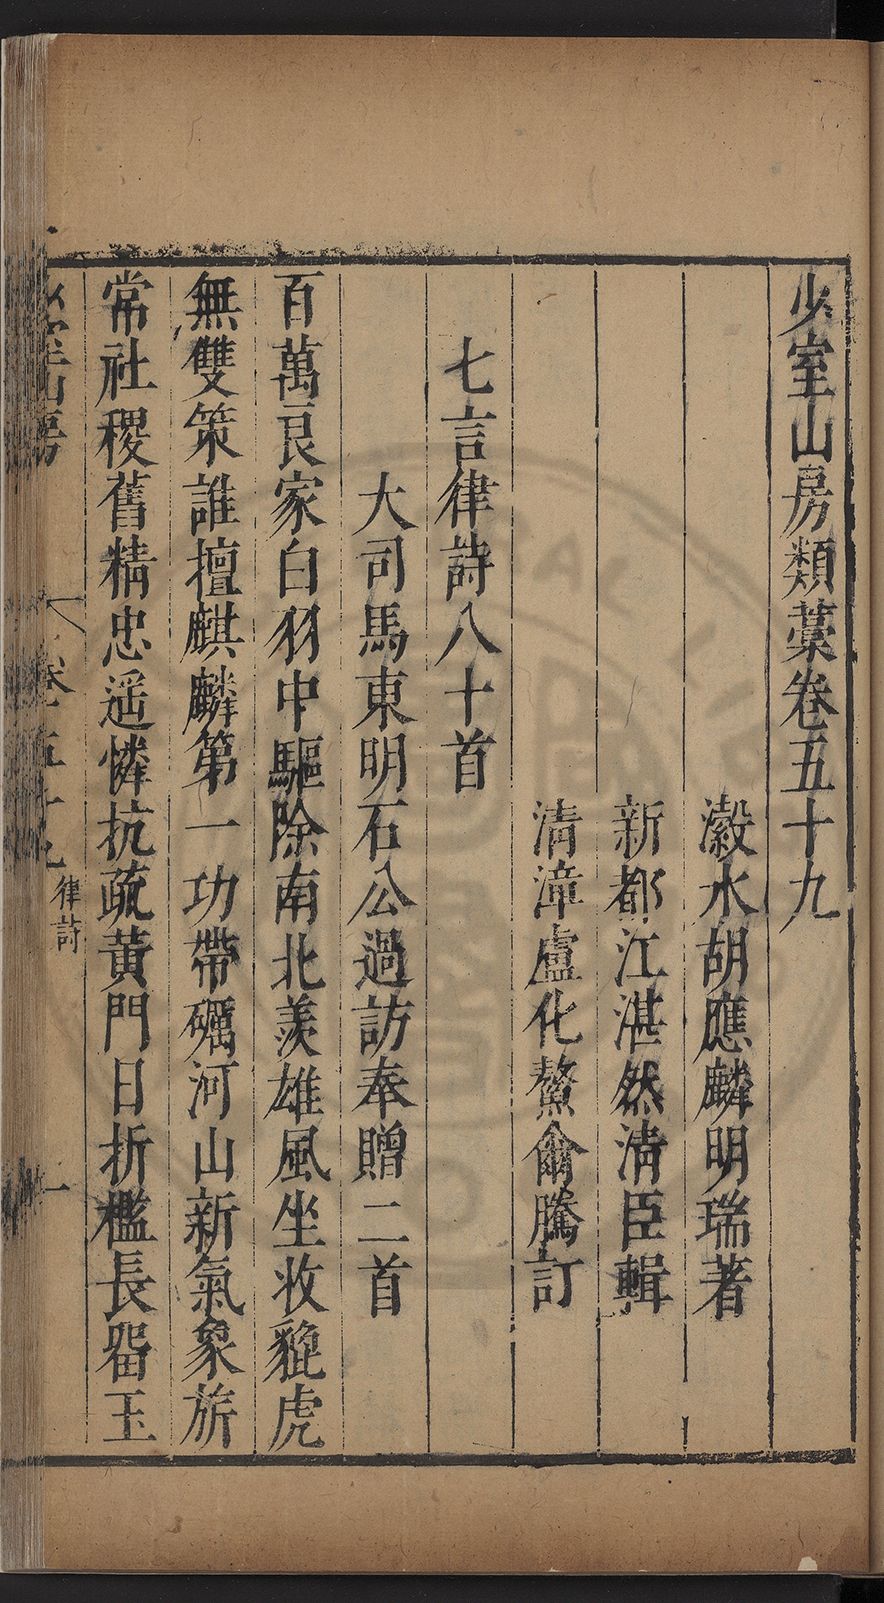 少室山房類藁卷五十九
瀫水胡應麟明瑞著
新都江湛然淸臣輯
清漳盧化鰲侖騰訂
七言律詩八十首
大司馬東明石公過訪奉贈二首
百萬良家白羽中驅除南北羨雄風坐收貔虎
無雙策誰擅麒麟第一功帶礪河山新氣象旂
常社稷舊精忠遥憐抗疏黃門日折檻長畱玉
室山房
卷五十九
律詩
一